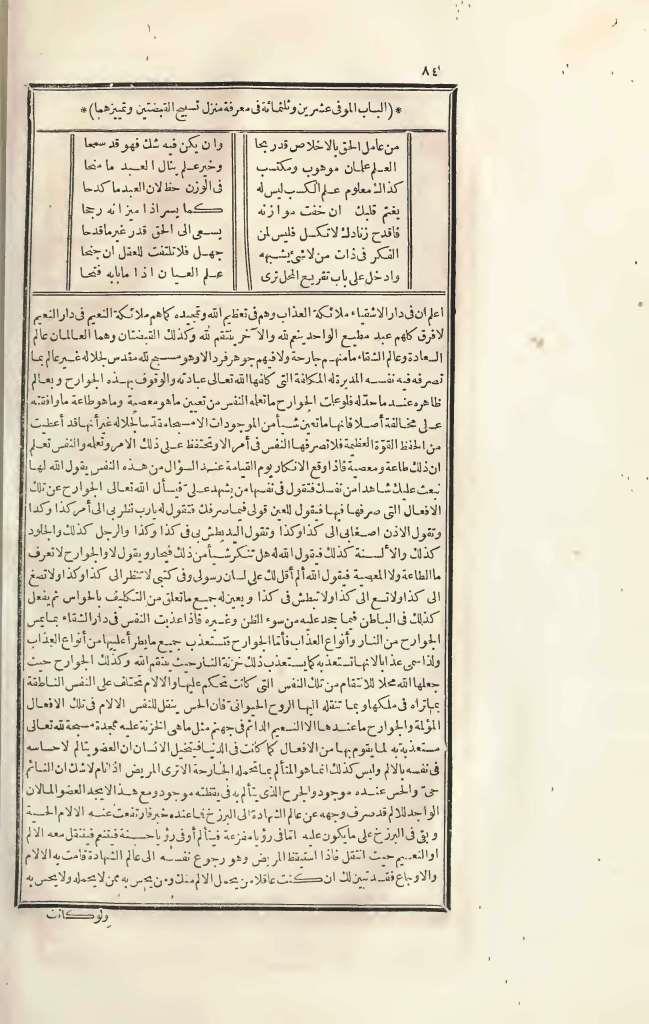 ٨٤
*(الباب الموفى عشرين وثلثمائة فى معرفة منزل تسبيح القبضتين وتمييزهما)*
من عامل الحق بالاخلاص قدر بحا وان يكن فيه شك فهو قد سمحا
العلم علمان موهوب ومكتسب وخير علم ينال العبد ما منحا
كذاك معلوم علم الكسب ليس له فى الوزن حظ لان العبد ما كدحا
يغتم قلبك ان خفت موازنه كما يسر اذا ميزانه رجحا
فاقدح زنادك لا تكسل فليس لمن يسعى الى الحق قدر غير ما قدحا
الفكر فى ذات من لا شئ يشبهه جهل فلا تلتفت للعقل ان جنحا
وادخل على باب تفريع المحل ترى علم العيان اذا ما بابه فتحا
اعلم ان فى دار الاشقياء ملائكة العذاب وهم فى تعظيم الله وتمجيده كما هم ملائكة النعيم فى دار النعيم
لا فرق كلهم عبد مطيع الواحد ينعم لله والآخر ينتقم لله وكذلك القبضتان وهما العالمان عالم
السعادة وعالم الشقاء ما منهم جارحة ولا فيهم جوهر فرد الا وهو مسبح لله مقدس لجلاله غير عالم بما
تصرفه فيه نفسه المدبرة له المكلفة التى كلفها الله تعالى عبادته والوقوف بهذه الجوارح وبعالم
ظاهره عند ما حدّ له فلو علمت الجوارح ما تعلمه النفس من تعيين ما هو معصية وما هو طاعة ما وافقته
على مخالفة أصلا فانها ما تعين شيأ من الموجودات الا مسبحا مقدّسا لجلاله غير أنها قد أعطيت
من الحفظ القوّة العظيمة فلا تصرفها النفس فى أمر الا وتحتفظ على ذلك الامر وتعلمه والنفس تعلم
ان ذلك طاعة ومعصية فاذا وقع الانكار يوم القيامة عند السؤال من هذه النفس يقول الله لها
نبعث عليك شاهدا من نفسك فتقول فى نفسها من يشهد على فيسأل الله تعالى الجوارح عن تلك
الافعال التى صرفها فيها فيقول للعين قولى فيما صرفك فتقول له يارب نظر بى الى أمر كذا وكذا
وتقول الاذن اصغى بى الى كذا وكذا وتقول اليد بطش بى فى كذا وكذا والرجل كذلك والجلود
كذلك والألسنة كذلك فيقول الله له هل تنكر شيأ من ذلك فيحار ويقول لا والجوارح لا تعرف
ما الطاعة ولا المعصية فيقول الله ألم أقل لك على لسان رسولى وفى كتبى لا تنظر الى كذا وكذا ولا تصغ
الى كذا ولا تسع الى كذا ولا تبطش فى كذا ويعين له جميع ما تعلق من التكليف بالحواس ثم يفعل
كذلك فى الباطن فيما حجر عليه من سوء الظن وغيره فاذا عذبت النفس فى دار الشقاء بما يمس
الجوارح من النار وأنواع العذاب فأمّا الجوارح فتستعذب جميع ما يطرأ عليها من أنواع العذاب
ولذا سمى عذابا لانها تستعذبه كما يستعذب ذلك خزنة النار حيث ينتقم لله وكذلك الجوارح حيث
جعلها الله محلا للانتقام من تلك النفس التى كانت تحكم عليها والآلام تختلف على النفس الناطقة
بما تراه فى ملكها وبما تنقله اليها الروح الحيوانى فان الحس ينقل للنفس الالام فى تلك الافعال
المؤلمة والجوارح ما عندها الا النعيم الدائم فى جهنم مثل ما هى الخزنة عليه ممجدة مسبحة لله تعالى
مستعذبة به لما يقوم بها من الافعال كما كانت فى الدنيا فيتخيل الانسان ان العضو يتألم لاحساسه
فى نفسه بالالم وليس كذلك انما هو المتألم بما تحمله الجارحة الا ترى المريض اذا نام لا شك ان النائم
حىّ والحس عنده موجود والجرح الذى يتألم به فى يقظته موجود ومع هذا لا يجد العضو ألما لان
الواجد للالم قد صرف وجهه عن عالم الشهادة الى البرزخ فما عنده خبر فارتفعت عنه الالام الحسية
وبقى فى البرزخ على ما يكون عليه اما فى رؤيا مفزعة فيتألم أو فى رؤيا حسنة فيتنعم فينتقل معه الالم
او النعيم حيث انتقل فاذا استيقظ المريض وهو رجوع نفسه الى عالم الشهادة قامت به الالام
والاوجاع فقد تبين لك ان كنت عاقلا من يحمل الالم منك ومن يحس به ممن لا يحمله ولا يحس به
ولو كانت